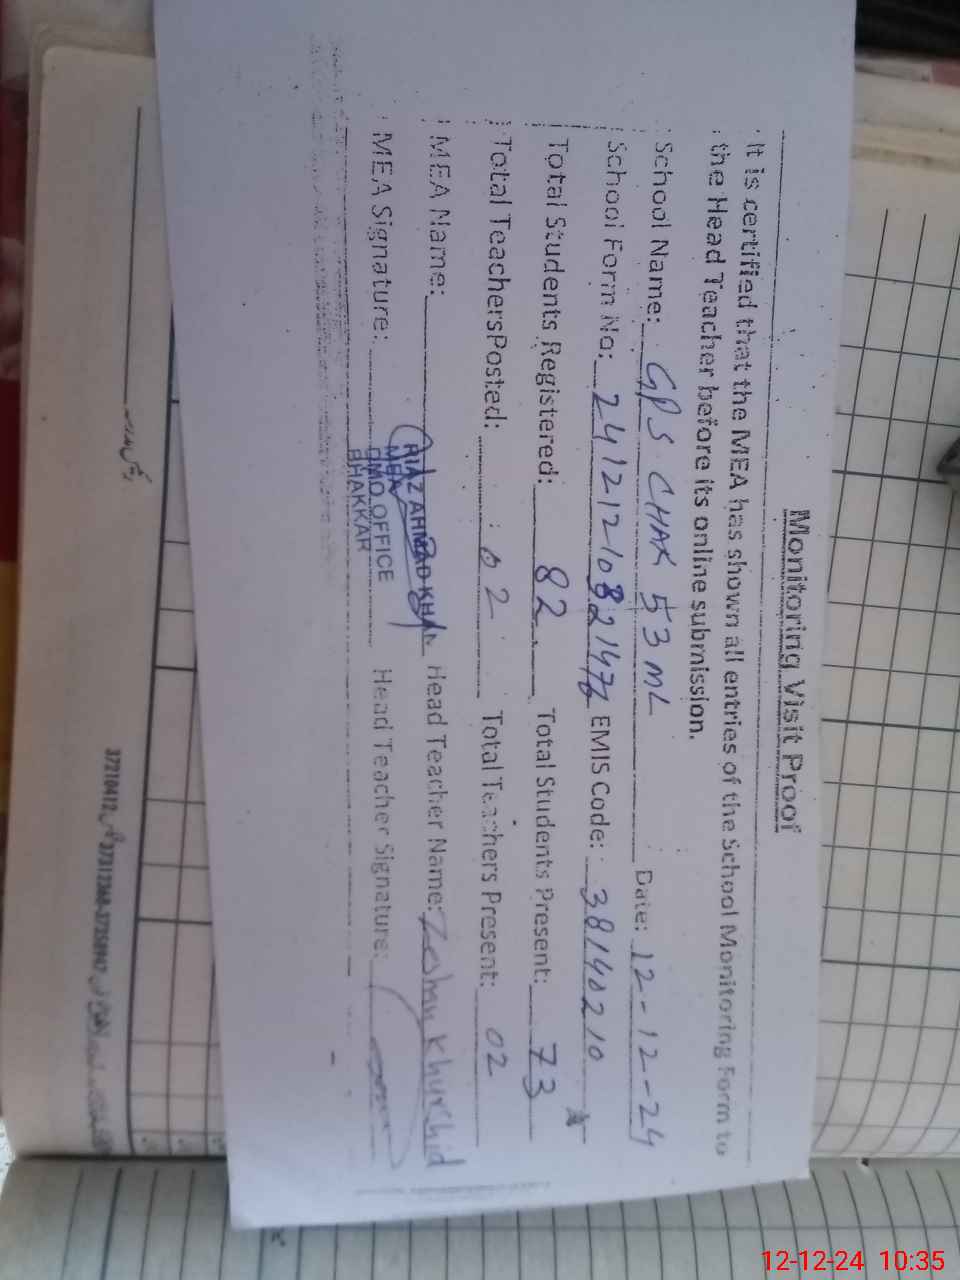 Monitoring Visit Proof
It is certified that the MEA has shown all entries of the School Monitoring Form to
the Head Teacher before its online submission.
School Name: GPS CHAK 53 ML Date: 12-12-24
School Form No: EMIS Code: 38140210
Total Students Registered: 82 Total Students Present: 73
Total TeachersPosted: 02 Total Teachers Present: 02
MEA Name: RIAZ AHMAD KHAN Head Teacher Name: Khurshid
MEA Signature: Head Teacher Signature:
MEA
DMO OFFICE
BHAKKAR
12-12-24 10:35